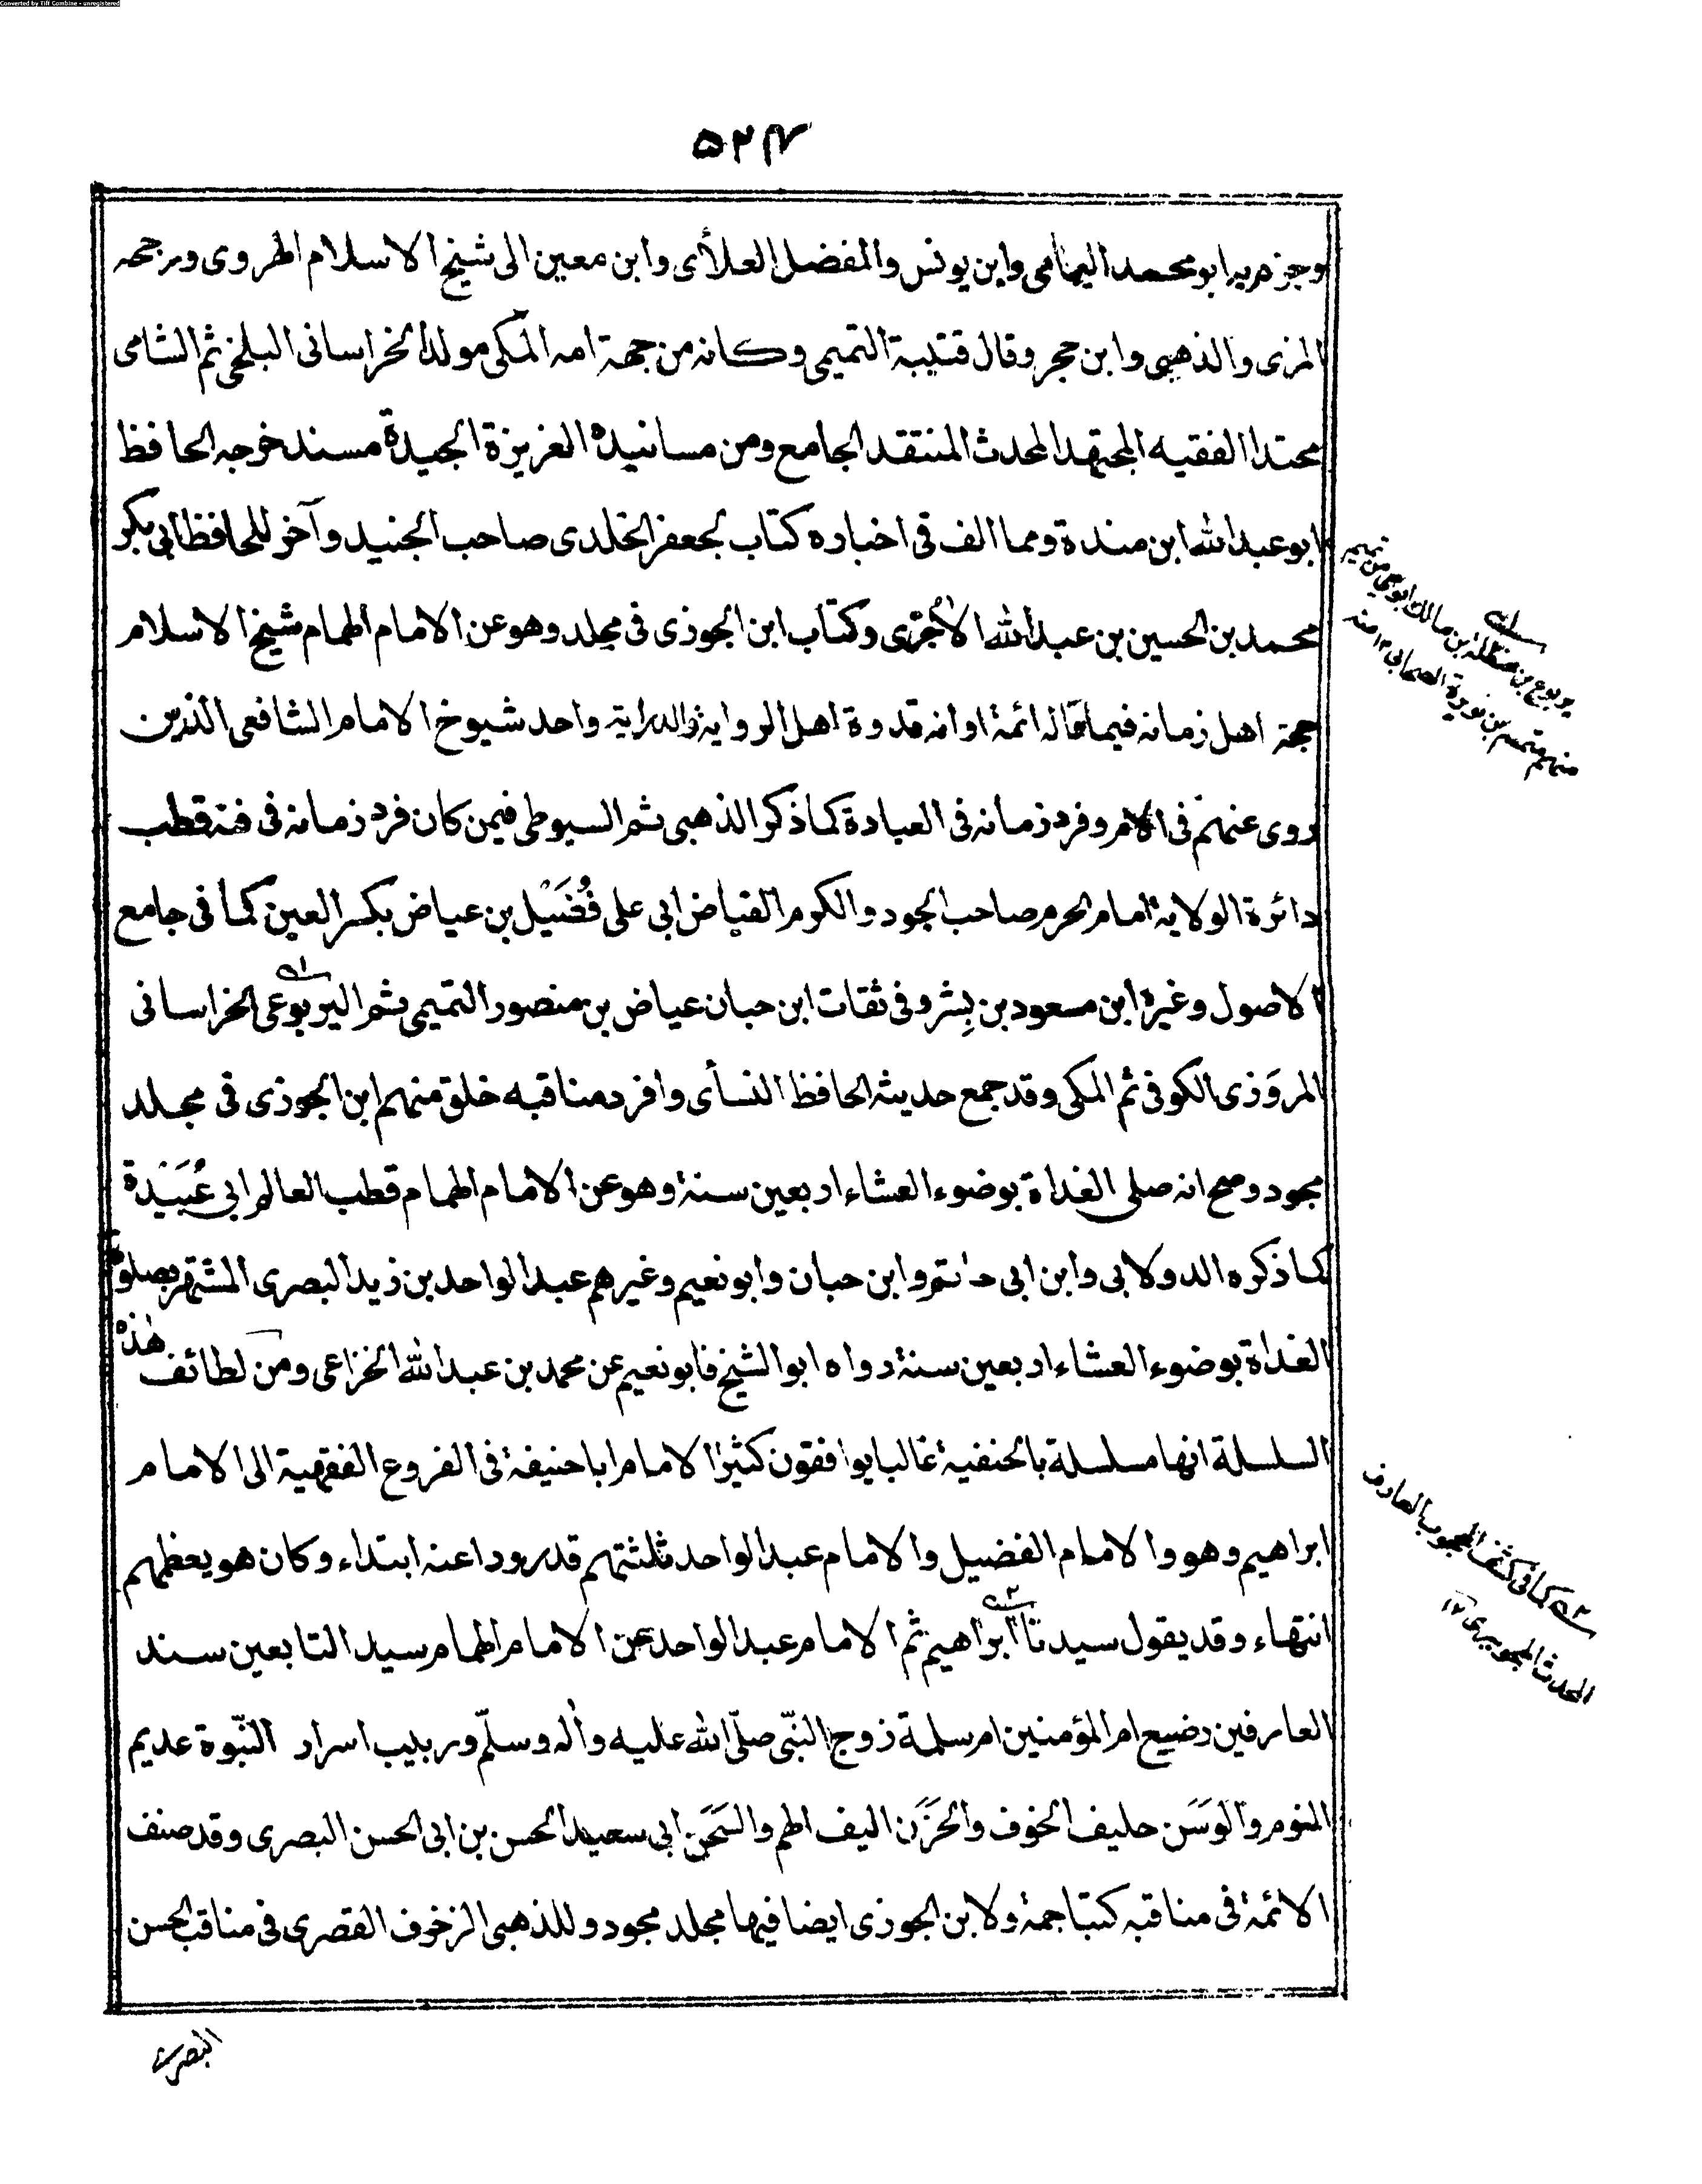 Converted by Tiff Combine - unregistered
۵۲۴
وجزم به ابو محمد اليمامى وابن يونس والمفضل العلأى وابن معين الى شيخ الاسلام الهروى ورجحه
المزى والذهبى وابن حجر وقال قتيبة التميمى وكانه من جهة امه المكى مولدا الخراسانى البلخى ثم الشامى
محتدا الفقيه المجتهد المحدث المنتقد الجامع ومن مسانيده العزيزة الجيدة مسند خرجه الحافظ
ابو عبد الله ابن مندة ومما الف فى اخباره كتاب لجعفر الخلدى صاحب الجنيد وآخر للحافظ ابى بكر
محمد بن الحسين بن عبد الله الأجرّى وكتاب ابن الجوزى فى مجلد وهو عن الامام الهمام شيخ الاسلام
حجة اهل زمانه فيما قاله ائمة اوانه قدوة اهل الرواية والدراية واحد شيوخ الامام الشافعى الذين
روى عنهم فى الام وفرد زمانه فى العبادة كما ذكر الذهبى ثم السيوطى فيمن كان فرد زمانه فى فنه قطب
دائرة الولاية امام الحرم صاحب الجود والكرم الفياض ابى على فُضَيْل بن عياض بكسر العين كما فى جامع
الاصول وغيره ابن مسعود بن بِشر وفى ثقات ابن حبان عياض بن منصور التميمى ثم اليربوعى الخراسانى
المروَزى الكوفى ثم المكى وقد جمع حديثه الحافظ النسأى وافرد مناقبه خلق منهم ابن الجوزى فى مجلد
مجود وصح انه صلى الغداة بوضوء العشاء اربعين سنة وهو عن الامام الهمام قطب العالم ابى عُبَيْدة
كما ذكره الدولابى وابن ابى حاتم وابن حبان وابو نعيم وغيرهم عبد الواحد بن زيد البصرى المشتهر بصلوة
الغداة بوضوء العشاء اربعين سنة رواه ابو الشيخ فابو نعيم عن محمد بن عبد الله الخزاعى ومن لطائف هذه
السلسلة انها مسلسلة بالحنفية غالبا يوافقون كثيرا الامام ابا حنيفة فى الفروع الفقهية الى الامام
ابراهيم وهو والامام الفضيل والامام عبد الواحد ثلثتهم قد رووا عنه ابتداء وكان هو يعظمهم
انتهاء وقد يقول سيدنا ابراهيم ثم الامام عبد الواحد عن الامام الهمام سيد التابعين سند
العارفين رضيع ام المؤمنين ام سلمة زوج النبّى صلّى الله عليه وأله وسلّم وربيب اسرار النبّوة عديم
النوم والوَسَن حليف الخوف والحَزَن اليف الهم والشَجَن ابى سعيد الحسن بن ابى الحسن البصرى وقد صنف
الائمة فى مناقبه كتبا جمة ولابن الجوزى ايضا فيها مجلد مجود وللذهبى الزخرف القصرى فى مناقب الحسن
البصرى
يربوع بن حنظلة بن مالك ابو حى من تميم
منهم متمم بن نويرة الصحابى ۱۲ منه
۲ كما فى كشف المحجوب للعارف
المحدث الهجويرى ۱۲